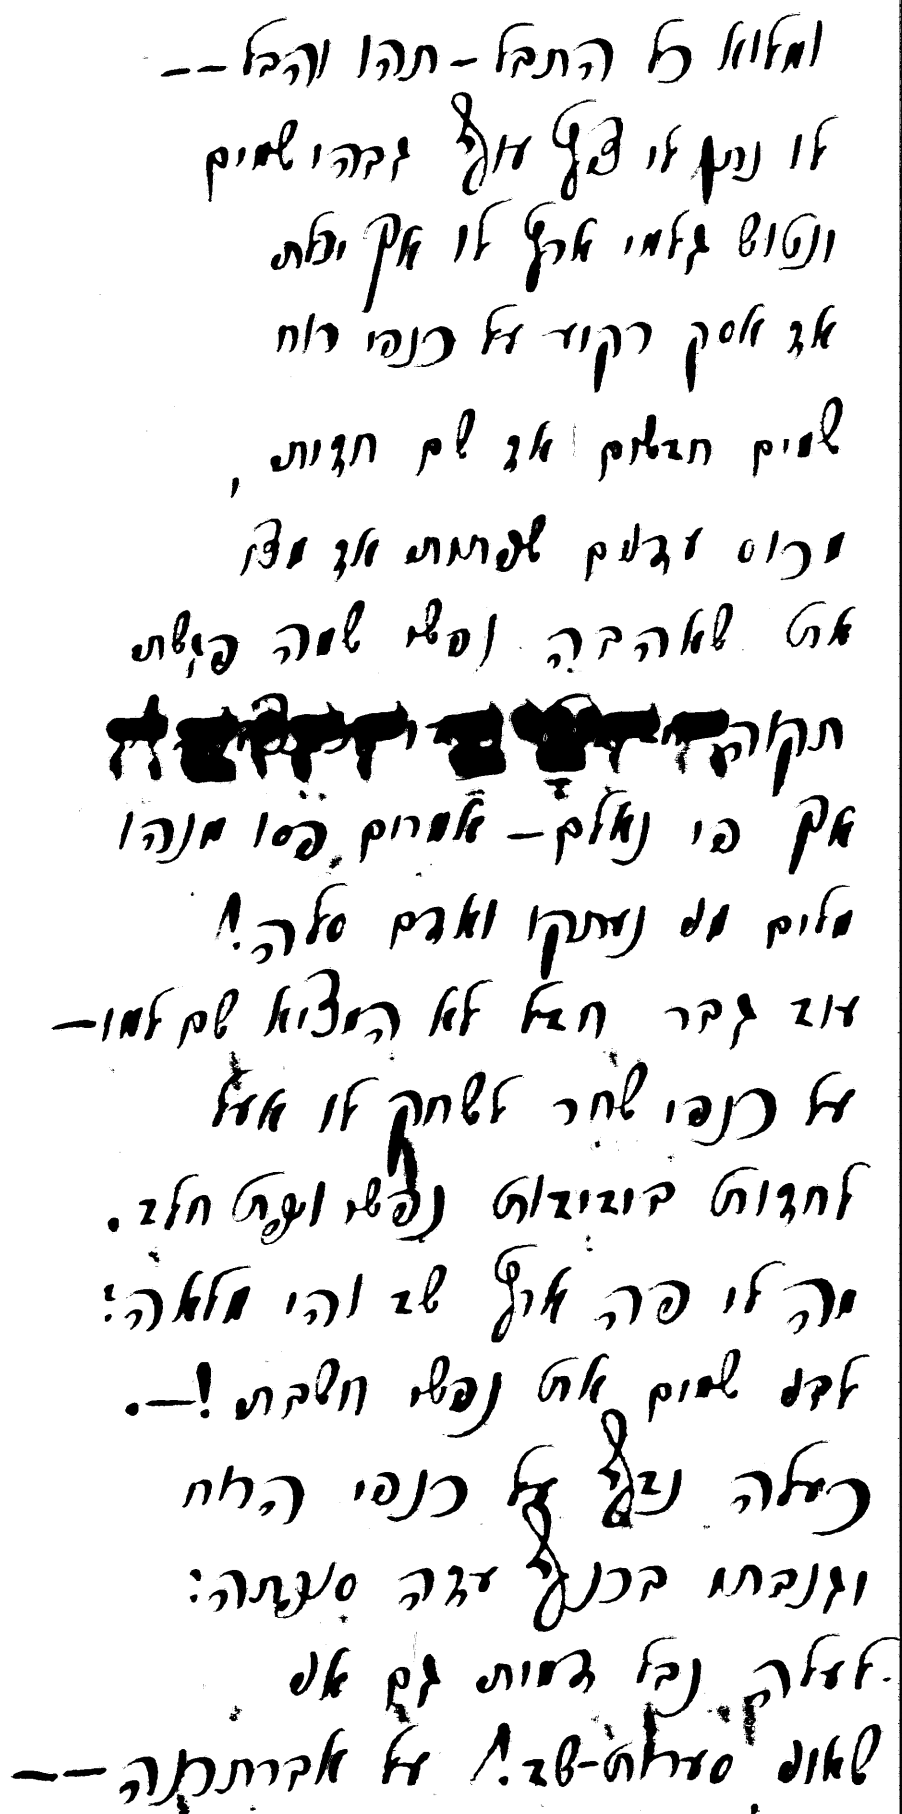 ומלוא כל התבל – תהו והבל – –
לו נתן לי צף עוף גבהי שמים
ונטוש גלמי ארץ לו אך יכלת
אז אסק רקוע על כנפי רוח
שמים חבשום אז שם חדות,
מכוס עדנים שפתות אז מצו
את שאהבה נפשי שמה פגשת
תקוה
אך פי נאלם – אמרים פסו מנהו
מלים מני נעתקו ואדם סלה!
עוד גבר חבל לא המציא שם למו –
על כנפי שחר לשחק לו אעל
לחדות בידידות נפשי ועת חלד.
מה לי פה ארץ שד והי מלאה:
לבי שמים את נפשי חשבת! – .
כעלה נדף על כנפי הרוח
וגנבתו בכנף עדה סופתה:
לעלה נבל דמית גם אני
שאוני סערות-שד! על אברתכנה – –